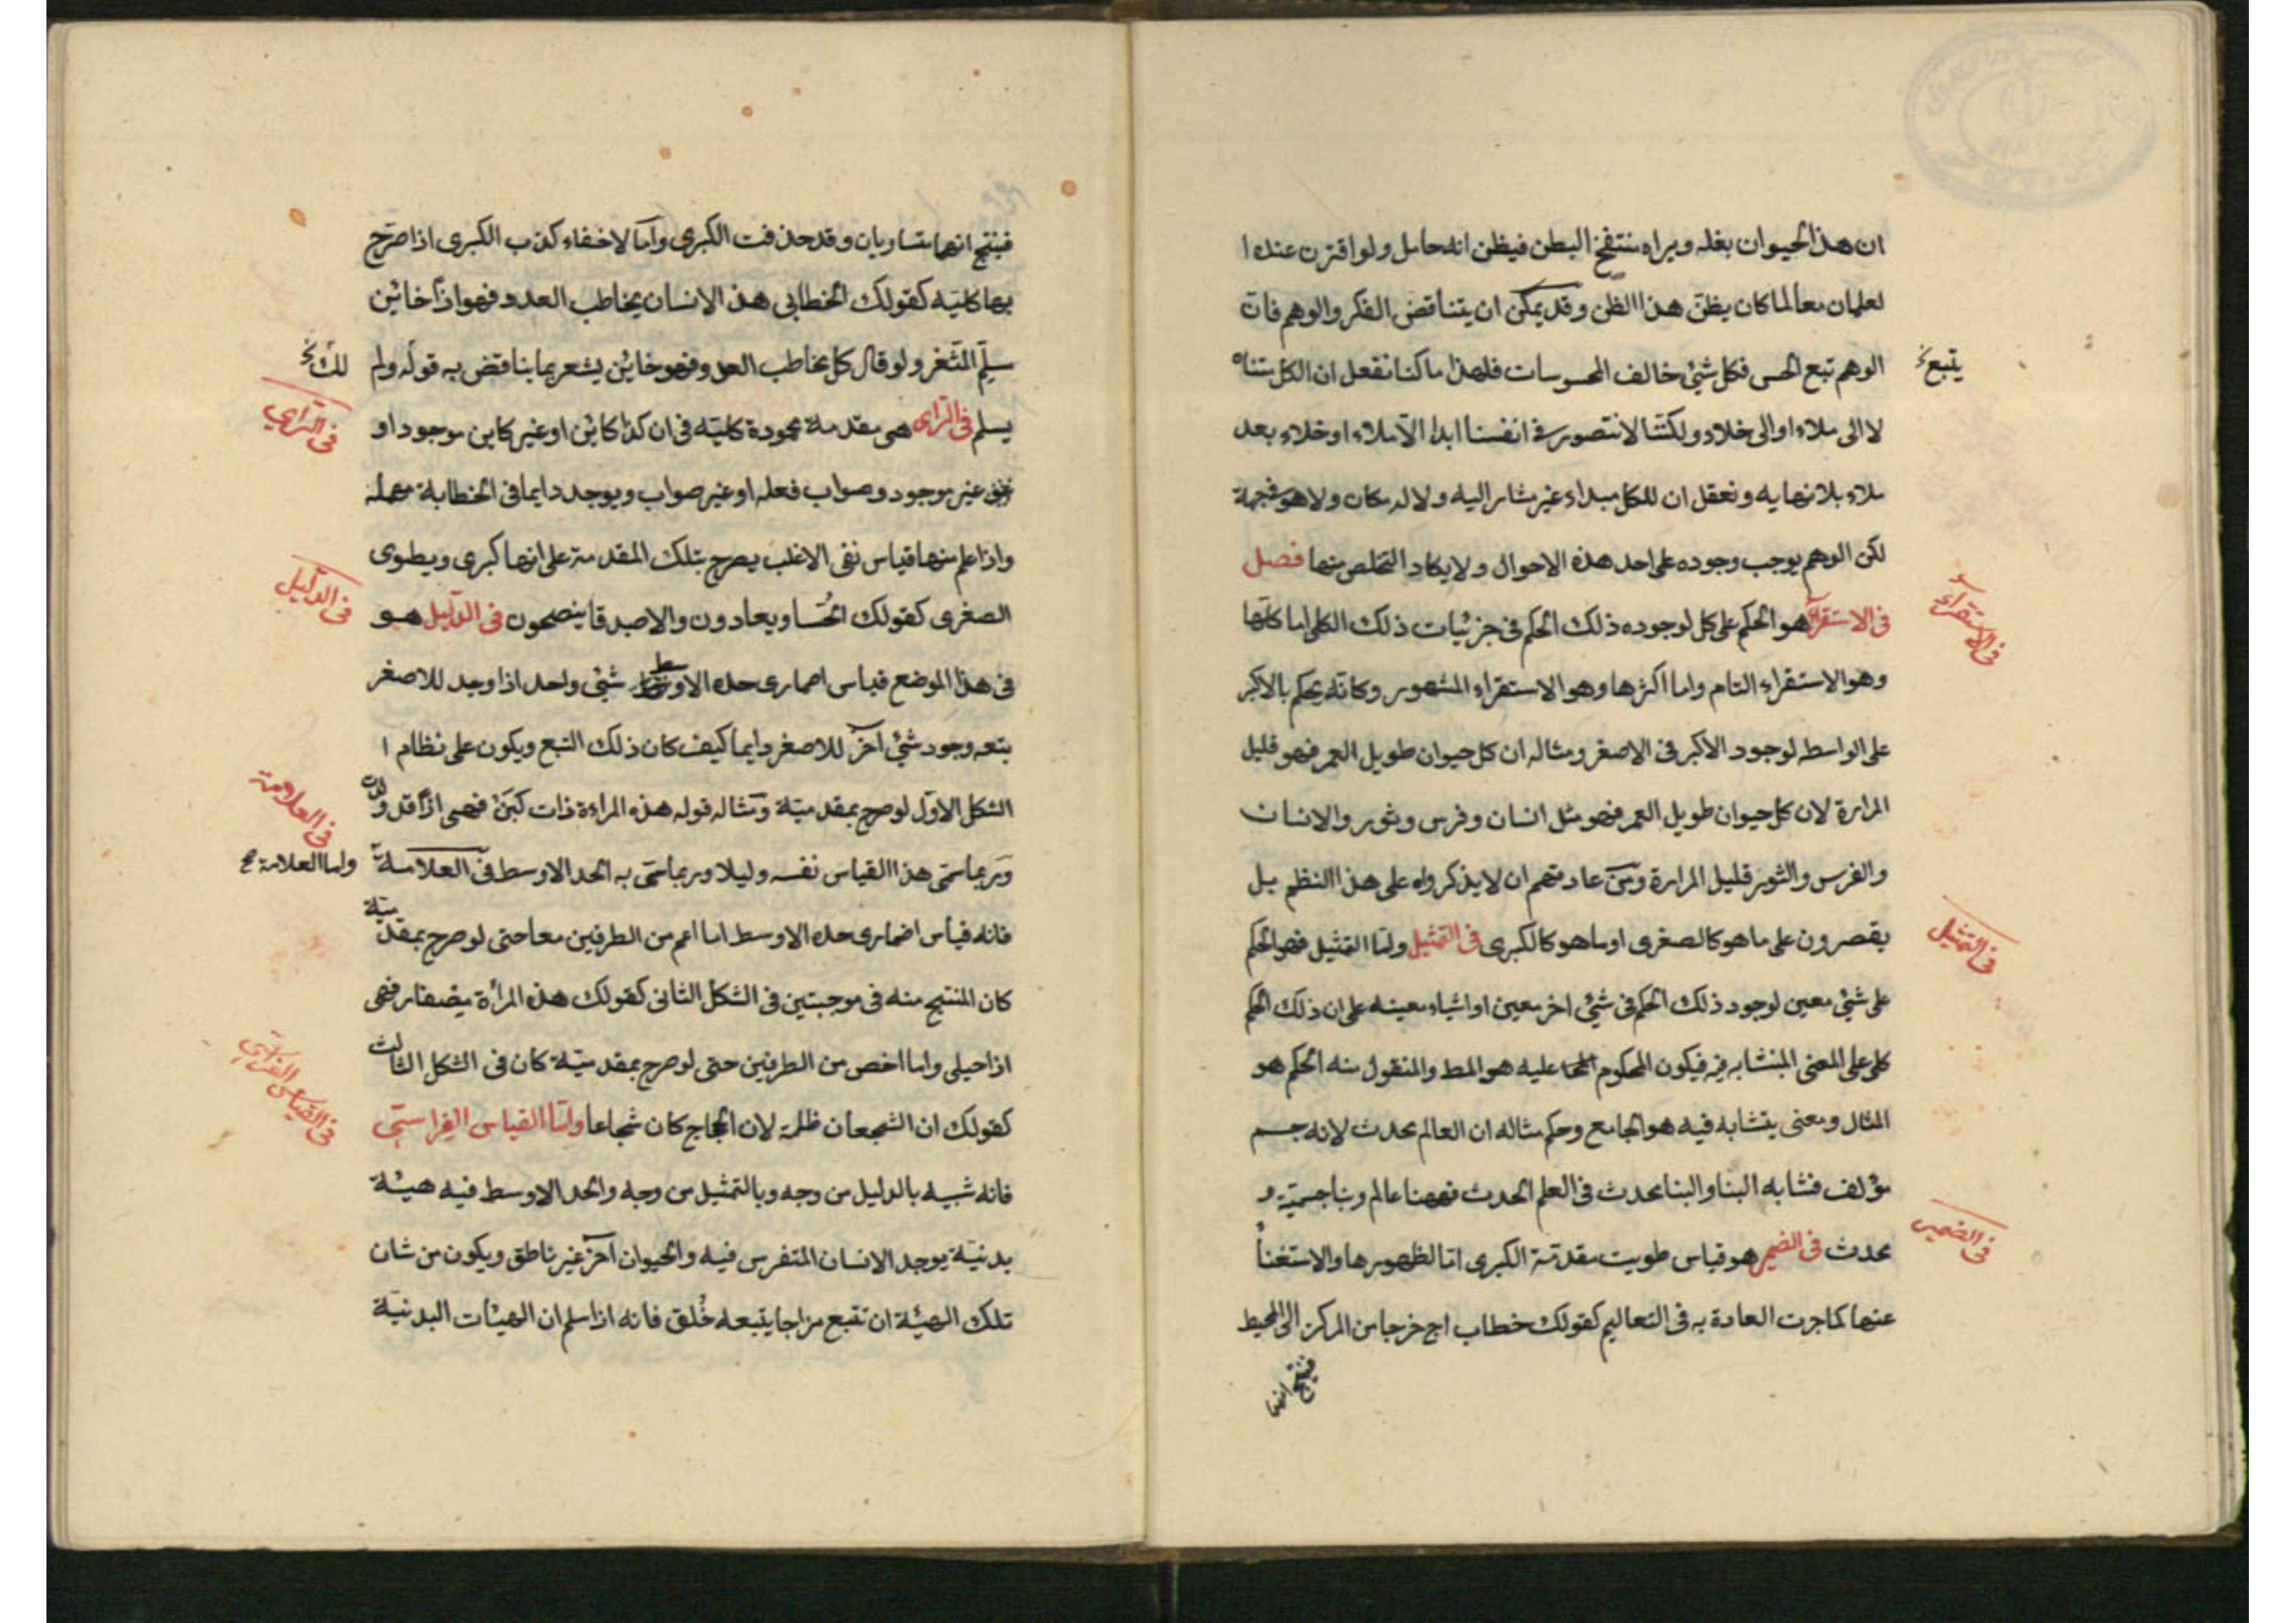 ان هذا الحيوان بغله ويراه منتفخ البطن فيظن انه حامل ولو اقترن عنده ا
لعلمان معا لما كان يظن هذا الظن وقد يمكن ان يتناقض الفكر والوهم فان
الوهم تبع الحس فكل شئ خالف المحسوسات فلهذا ما كنا نفعل ان الكل متناه
يتبع خ
لا الى ملاء او الى خلاء ولكننا لا نتصور في انفسنا ابدا الا ملاء او خلاء بعد
ملاء بلا نهايه ونعقل ان للكل مبداء غير مشار اليه ولا له مكان ولا هو في جهة
لكن الوهم يوجب وجوده على احد هذه الاحوال ولا يكاد التخلص منها فصل
في الاستقراء هو الحكم على كل لوجوده ذلك الحكم في جزئيات ذلك الكلي اما كلها
في الاستقراء
وهو الاستقراء التام واما اكثرها وهو الاستقراء المشهور وكانه يحكم بالاكبر
على الواسطه لوجود الاكبر في الاصغر ومثاله ان كل حيوان طويل العمر فهو قليل
المرارة لان كل حيوان طويل العمر فهو مثل انسان وفرس وثور والانسان
والفرس والثور قليل المرارة ومن عادتهم ان لا يذكروه على هذا النظم بل
يقصرون على ما هو كالصغرى او ما هو كالكبرى في التمثيل واما التمثيل فهو الحكم
في التمثيل
على شئ معين لوجود ذلك الحكم في شئ اخر معين او اشياء معينه على ان ذلك الحكم
كلي على المعنى المتشابه فيه فيكون المحكوم عليه هو المط والمنقول منه الحكم هو
المثال ومعنى يتشابه فيه هو الجامع وحكم مثاله ان العالم محدث لانه جسم
مؤلف فشابه البنا والبنا محدث في العلم الحدث فههنا عالم وبنا جسمية و
محدث في الضمير هو قياس طويت مقدمة الكبرى اما لظهورها والاستغناء
في الضمير
عنها كما جرت العادة به في التعاليم كقولك خطاب اج خرجا من المركز الى المحيط
فينتج انهما
فينتج انهما متساويان وقد حذفت الكبرى واما لاخفاء كذب الكبرى اذا صرح
بها كلية كقولك الخطابي هذا الانسان يخاطب العدو فهو اذا خائن
سلم الثغر ولو قال كل مخاطب العدو فهو خائن يشعر بما يناقض به قوله ولم
يسلم في الراي هي مقدمة محمودة كلية في ان كذا كائن او غير كاين موجود او
في الراي
غير موجود وصواب فعله او غير صواب ويوجد دايما في الخطابة مهمله
واذا علم منها قياس نفى الاغلب يصرح بتلك المقدمة على انها كبرى ويطوى
الصغرى كقولك الحساد يعادون والاصدقا ينصحون في الدليل هو
في الدليل
في هذا الموضع قياس اضمارى حده الاوسط شئ واحد اذا وجد للاصغر
يتعه وجود شئ اخر للاصغر دايما كيف كان ذلك التبع ويكون على نظام ا
الشكل الاول لو صرح بمقدمية ومثاله قوله هذه المراءة ذات لبن فهى اذا قد ولدت
وربما سمى هذا القياس نفسه دليلا وربما سمى به الحد الاوسط في العلامة
في العلامة
واما العلامة صح
فانه قياس اضمارى حده الاوسط اما اعم من الطرفين معا حتى لو صرح بمقدميته
كان المنتج منه في موجبتين في الشكل الثانى كقولك هذه المرأة مصفار فهى
اذا حبلى واما اخص من الطرفين حتى لو صرح بمقدميتة كان في الشكل الثالث
كقولك ان الشجعان ظلمة لان الحجاج كان شجاعا واما القياس الفراستى
في القياس الفراستى
فانه شبيه بالدليل من وجه وبالتمثيل من وجه والحد الاوسط فيه هيئة
بدنية يوجد الانسان المتفرس فيه والحيوان اخر غير ناطق ويكون من شان
تلك الهيئة ان تتبع مزاجا يتبعه خلق فانه اذا سلم ان الهيئات البدنية